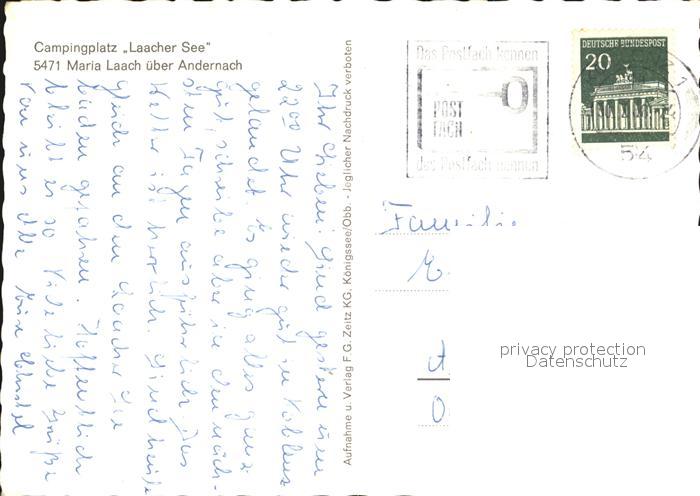 Campingplatz „Laacher See"
5471 Maria Laach über Andernach
Ihr Lieben! Sind gestern um
22⁰⁰ Uhr wieder gut in Koblenz
gelandet. Es ging alles ganz
gut, schreibe aber in den näch-
sten Tagen ausführlich. Das
Wetter ist herrlich. Sind heute
gleich an den Laacher See
baden gefahren. Hoffentlich
bleibt es so. Viele liebe Grüße
von uns alle
Aufnahme u. Verlag F. G. Zeitz KG. Königssee/Obb. - Jeglicher Nachdruck verboten
Das Postfach kennen
POST
FACH
das Postfach nennen
DEUTSCHE BUNDESPOST
20
54
Familie
privacy protection
Datenschutz